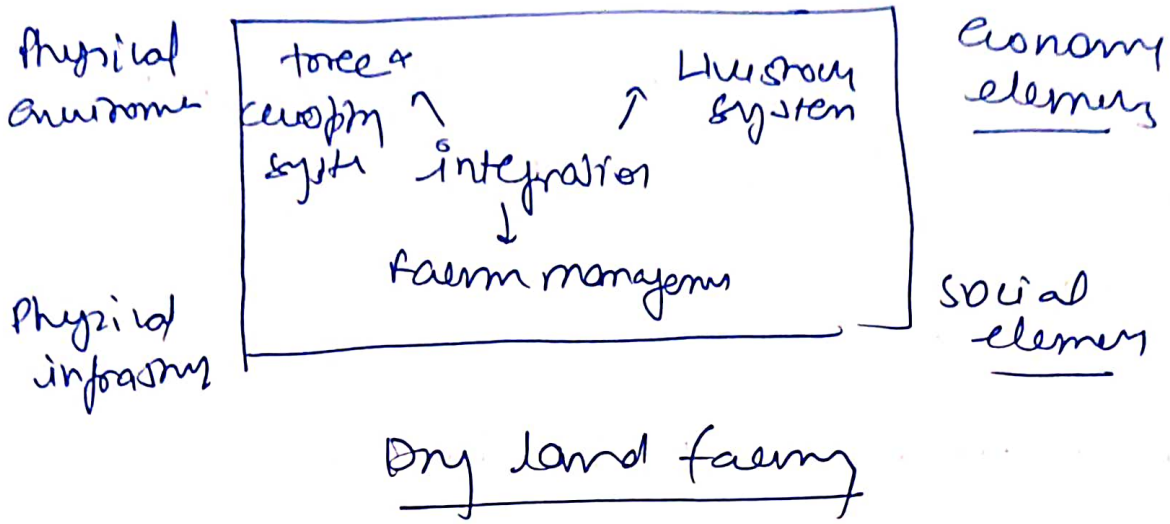 Physical
environme
tree &
cropping
syste
Livestock
system
economy
elements
integration
farm management
Physical
infrastru
social
element
Dry land farming